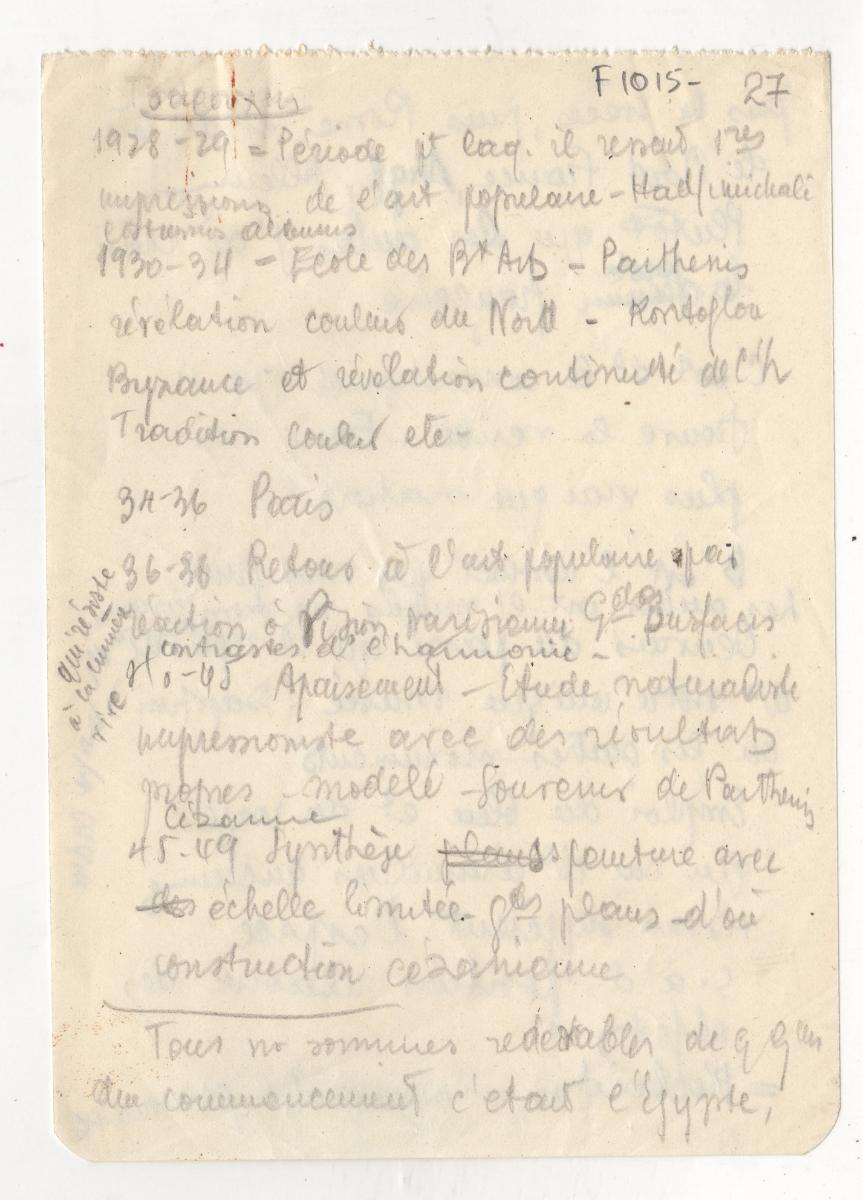 F1015- 27
Τσαρούχης
1928-29 = Période pt laq. il ressent 1res
impressions de l'art populaire - Hadjimichali
costumes albums
1930-34 - Ecole des Bx Arts - Parthenis
révélation couleurs du Nord - Kontoglou
Byzance et révélation continuité de l'h
Tradition couleur etc-
34-36 Paris
36-38 Retour à l'art populaire par
réaction à Vision parisienne Gdes Surfaces
contrastes et harmonie -
qui résiste
à la lumière
vive
40-45 Apaisement - Etude naturaliste
impressioniste avec des résultats
propres - modelé - Souvenir de Parthenis
Cézanne
45-49 Synthèse plans peinture avec
des échelle limitée - gds plans - d'où
construction cézanienne
Tous ns sommes redevables de qq'un
Au commencement c'etait l'Egypte,